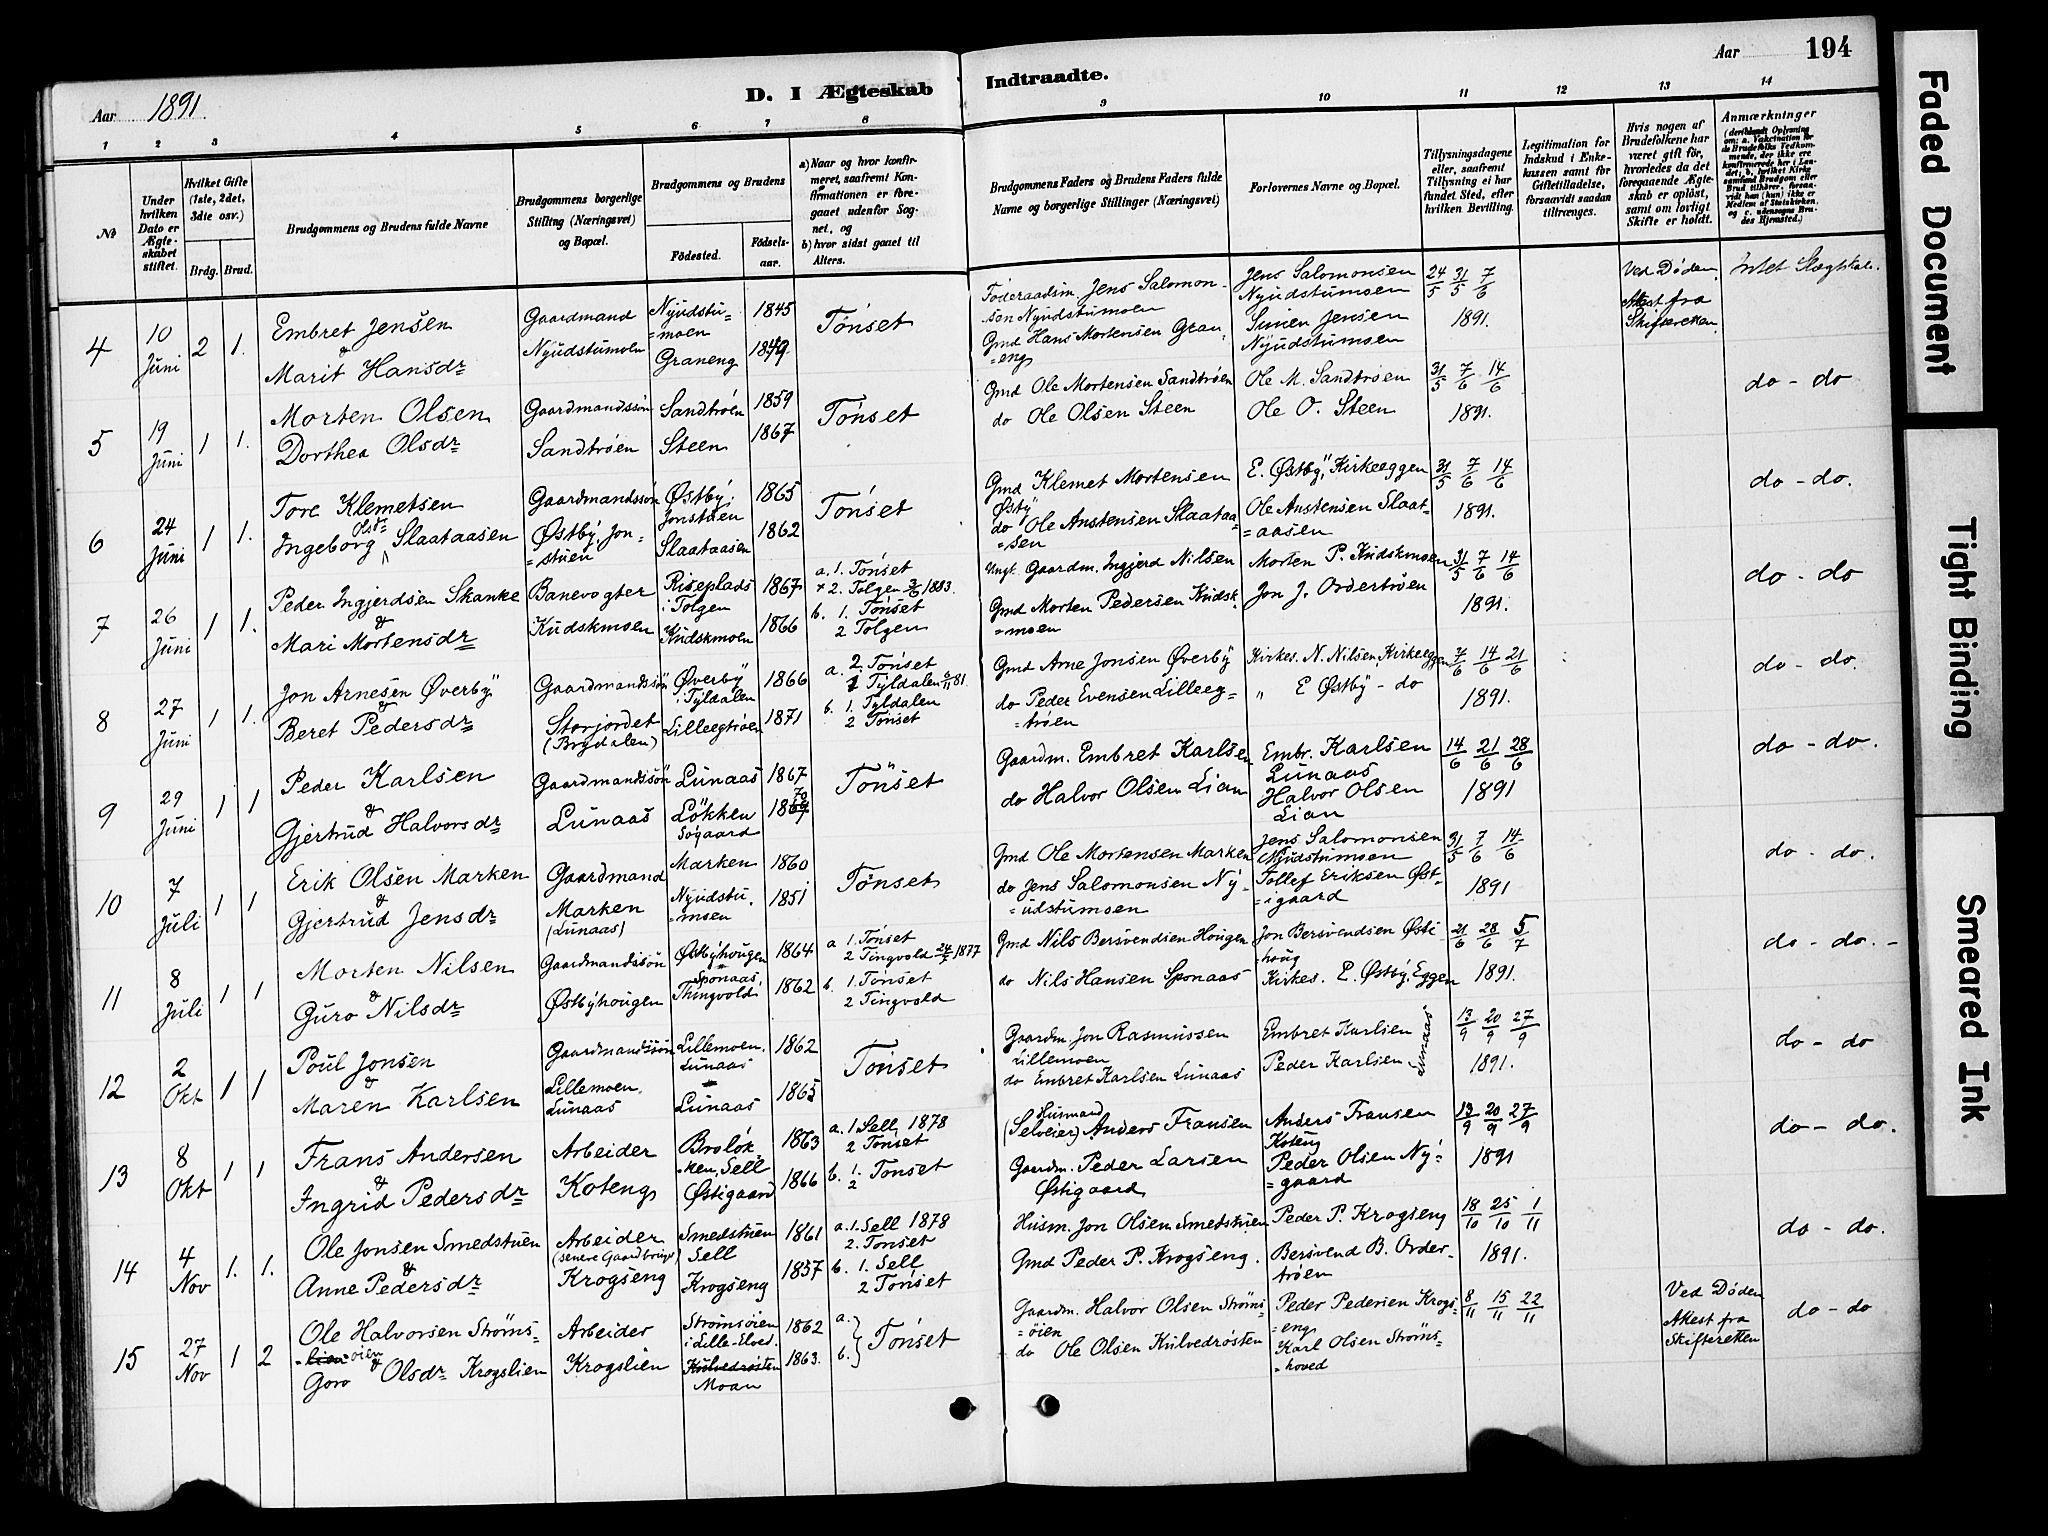 Aar 1891.
D. I Ægteskab Indtraadte.
Aar 194
1 2 3 4 5 6 7 8 9 10 11 12 13 14
№
Under hvilken Dato er Ægteskabet stiftet.
Hvilket Gifte (1ste, 2det, 3die osv.)
Brdg. Brud.
Brudgommens og Brudens fulde Navne
Brudgommens borgerlige Stilling (Næringsvei) og Bopæl.
Brudgommens og Brudens
Fødested.
Fødselsaar.
a) Naar og hvor konfirmeret, saafremt Konfirmationen er foregaaet udenfor Sognet, og
b) hvor sidst gaaet til Alters.
Brudgommens Faders og Brudens Faders fulde Navne og borgerlige Stillinger (Næringsvei)
Forlovernes Navne og Bopæl.
Tillysningsdagene eller, saafremt Tillysning ei har fundet Sted, efter hvilken Bevilling.
Legitimation for Indskud i Enkekassen samt for Giftetilladelse, forsaavidt saadan tiltrænges.
Hvis nogen af Brudefolkene har været gift før, hvorledes da det foregaaende Ægteskab er opløst, samt om lovligt Skifte er holdt.
Anmærkninger
4 10 Juni 2 1.
Embret Jensen & Marit Hansdr
Gaardmand Nyudstumoen
Nyudstu=moen 1845
Graneng 1849
Tønset
Føderaadsm. Jens Salomonsen Nyudstumoen
Gmd Hans Mortensen Graneng
Jens Salomonsen Nyudstumoen
Simen Jensen Nyudstumoen
24/5 31/5 7/6 1891.
Ved Døden. Attest fra Skifteretten.
Intet Slægtskab.
5 19 Juni 1 1.
Morten Olsen
Dorthea Olsdr
Gaardmandssøn Sandtrøen
Sandtrøen 1859
Steen 1867
Tønset
Gmd Ole Mortensen Sandtrøen
do Ole Olsen Steen
Ole M. Sandtrøen
Ole O. Steen
31/5 7/6 14/6 1891.
do - do
6 24 Juni 1 1.
Tore Klemetsen
Ingeborg Olsdr Slaataasen
Gaardmandssøn Østby, Jonstuen
Østby, Jonstuen 1865
Slaataasen 1862
Tønset
Gmd Klemet Mortensen Østby
do Ole Anstensen Slaataasen
E. Østby, Kirkeeggen
Ole Anstensen Slaataasen
31/5 7/6 14/6 1891.
do - do.
7 26 Juni 1 1.
Peder Ingjerdsen Skanke & Mari Mortensdr
Banevogter Kudskmoen
Riseplads i Tolgen 1867
Kudskmoen 1866
a. 1. Tønset
2. Tolgen 3/6 1883.
b. 1. Tønset
2 Tolgen
Ungk. Gaardm. Ingjerd Nilsen
Gmd Morten Pedersen Kudskmoen
Morten P. Kudskmoen
Jon J. Ordertrøen
31/5 7/6 14/6 1891.
do - do
8 27 Juni 1 1.
Jon Arnesen Øverby & Beret Pedersdr
Gaardmandssøn Storjordet (Brydalen)
Øverby i Tyldalen 1866
Lilleegtrøen 1871
a. 2. Tønset
1 Tyldalen 81.
b. 1. Tyldalen
2 Tønset
Gmd Arne Jonsen Øverby
do Peder Evensen Lilleegtrøen
Kirkes. N. Nilsen, Kirkeeggen
" E Østby - do
7/6 14/6 21/6 1891.
do - do.
9 29 Juni 1 1
Peder Karlsen & Gjertrud Halvorsdr
Gaardmandssøn Lunaas
Lunaas 1867
Løkken Søgaard 1870
Tønset
Gaardm. Embret Karlsen
do Halvor Olsen Lian
Embr. Karlsen Lunaas
Halvor Olsen Lian
14/6 21/6 28/6 1891
do - do.
10 7 Juli 1 1
Erik Olsen Marken & Gjertrud Jensdr
Gaardmand Marken (Lunaas)
Marken 1860
Nyudstu=moen 1851
Tønset
Gmd Ole Mortensen Marken
do Jens Salomonsen Nyudstumoen
Jens Salomonsen Nyudstumoen
Tollef Eriksen Østigaard
31/5 7/6 14/6 1891
do - do.
11 8 Juli 1 1
Morten Nilsen & Guro Nilsdr
Gaardmandssøn Østbyhougen
Østbyhougen 1864
Sponaas, Thingvold 1862
a 1. Tønset
2 Tingvold 24/7 1877
b. 1. Tønset
2 Tingvold
Gmd Nils Bersvendsen Hougen
do Nils Hansen Sponaas
Jon Bersvendsen Østihoug
Kirkes. E. Østby, Eggen
21/6 28/6 5/7 1891.
do - do. -
12 2 Okt 1 1
Poul Jonsen & Maren Karlsen
Gaardmandssøn Lillemoen. Lunaas
Lillemoen. Lunaas 1862
Lunaas 1865
Tønset
Gaardm Jon Rasmussen Lillemoen
do Embret Karlsen Lunaas
Embret Karlsen
Peder Karlsen
Lunaas
13/9 20/9 27/9 1891.
do - do
13 8 Okt 1 1
Frans Andersen & Ingrid Pedersdr
Arbeider Koteng
Broløkken, Sell 1863
Østigaard 1866
a. 1 Sell, 1878
2 Tønset
b. 1. 2 Tønset
Husmand (Selveier) Anders Fransen
Gaardm. Peder Larsen Østigaard
Anders Fransen Koteng
Peder Olsen Nygaard
13/9 20/9 27/9 1891
do - do.
14 4 Nov 1. 1.
Ole Jonsen Smedstuen & Anne Pedersdr
Arbeider (senere Gaardbruger) Krogseng
Smedstuen Sell 1861
Krogseng 1857
a. 1. Sell 1878
2. Tønset
b. 1. Sell
2 Tønset
Husm. Jon Olsen Smedstuen
Gmd Peder P. Krogseng.
Peder P. Krogseng
Bersvend B. Ordertrøen
18/10 25/10 1/11 1891.
do - do.
15 27 Nov 1 2
Ole Halvorsen Strømsøien & Goro Olsdr Krogslien
Arbeider Krogslien
Strømsøien i Lille-Elvd. 1862
Kulvedrøsten Moan 1863.
a. b. } Tønset
Gaardm. Halvor Olsen Strømsøien
do Ole Olsen Kulvedrøsten
Peder Pedersen Krogseng
Karl Olsen Strømshoved
8/11 15/11 22/11
Ved Døden Attest fra Skifteretten
do - do
Faded Document
Tight Binding
Smeared Ink